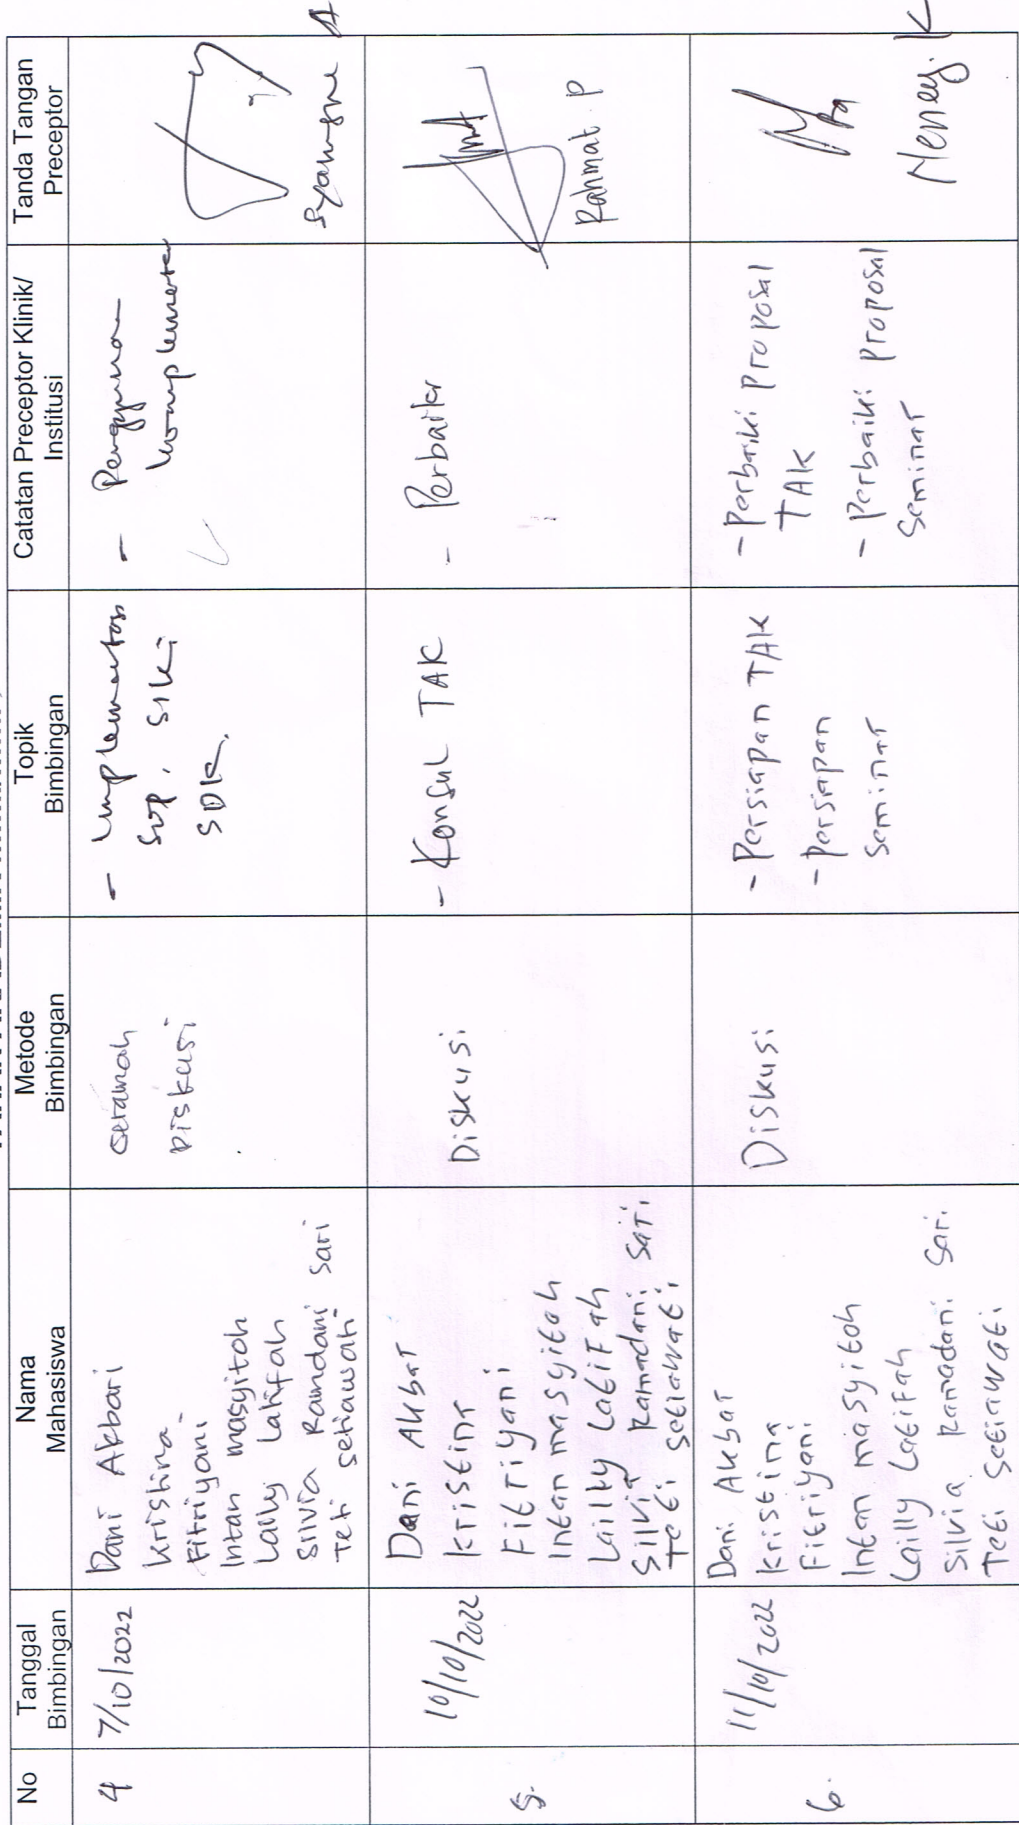 No
Tanggal
Bimbingan
Nama
Mahasiswa
Metode
Bimbingan
Topik
Bimbingan
Catatan Preceptor Klinik/
Institusi
Tanda Tangan
Preceptor
4
7/10/2022
Dani Akbari
Kristina
Fitriyani
Intan masyitoh
Lailly Latifah
Silvia Ramdani Sari
Teti setiawati
Ceramah
Diskusi
- Implementasi
SOP, SIKI
SDKI
- Penggunaan
komplementer
5.
10/10/2022
Dani Akbar
Kristina
Fitriyani
Intan masyitah
Lailly Latifah
Silvia Ramadani Sari
Teti Setiawati
Diskusi
- Konsul TAK
- Perbaiki
Rahmat. P
6.
11/10/2022
Dani Akbar
Kristina
Fitriyani
Intan masyitoh
Lailly Latifah
Silvia Ramadani Sari.
Teti Setiawati
Diskusi
- Persiapan TAK
- Persiapan
Seminar
- Perbaiki Proposal
TAK
- Perbaiki Proposal
Seminar